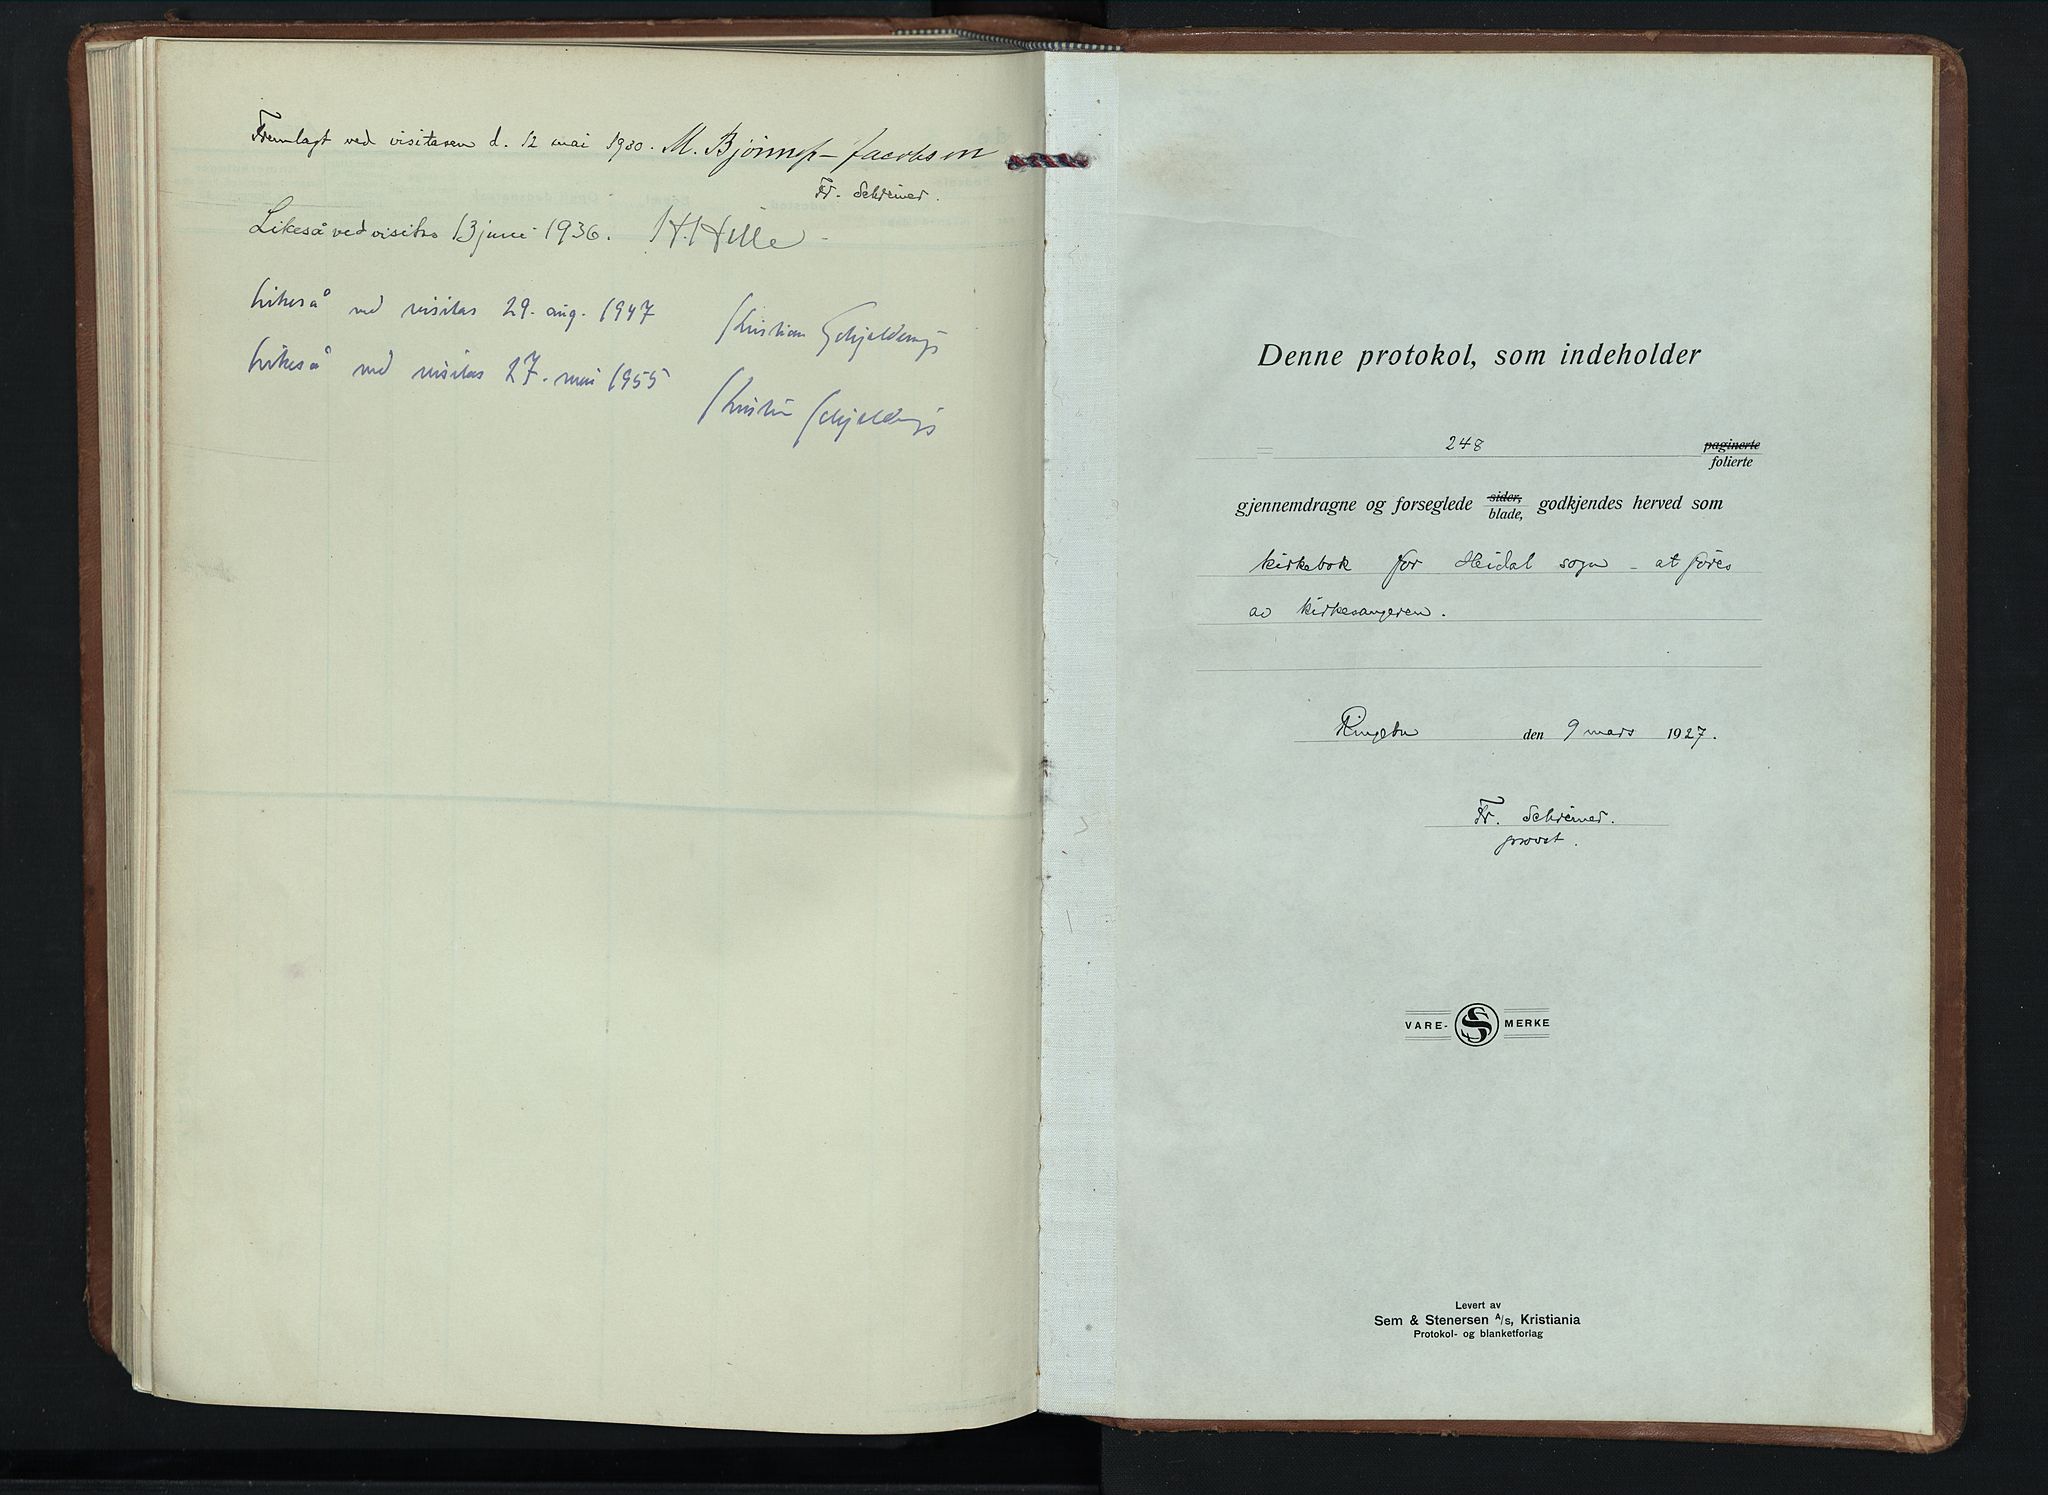 Fremlagt ved visitasen d. 12 mai 1930. M. Bjønness-Jacobsen
Fr. Schreiner.
Likeså ved visitas 13 juni 1936. H. Hille
Likeså ved visitas 29. aug. 1947 Kristian Schjelderup
Likeså ved visitas 27. mai 1955 Kristian Schjelderup
Denne protokol, som indeholder
= 248 paginerte
folierte
gjennemdragne og forseglede sider, godkjendes herved som
blade,
kirkebok for Heidal sogn - at føres
av kirkesangeren.
Ringebu den 9 mars 1927.
Fr. Schreiner.
provst.
VARE- S MERKE
Levert av
Sem & Stenersen A/s, Kristiania
Protokol- og blanketforlag